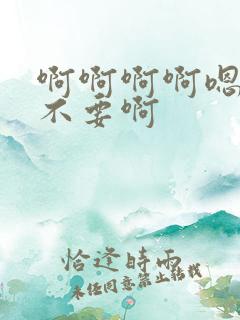 啊啊啊啊嗯
不要啊
恰逢時雨
未经同意禁止转载